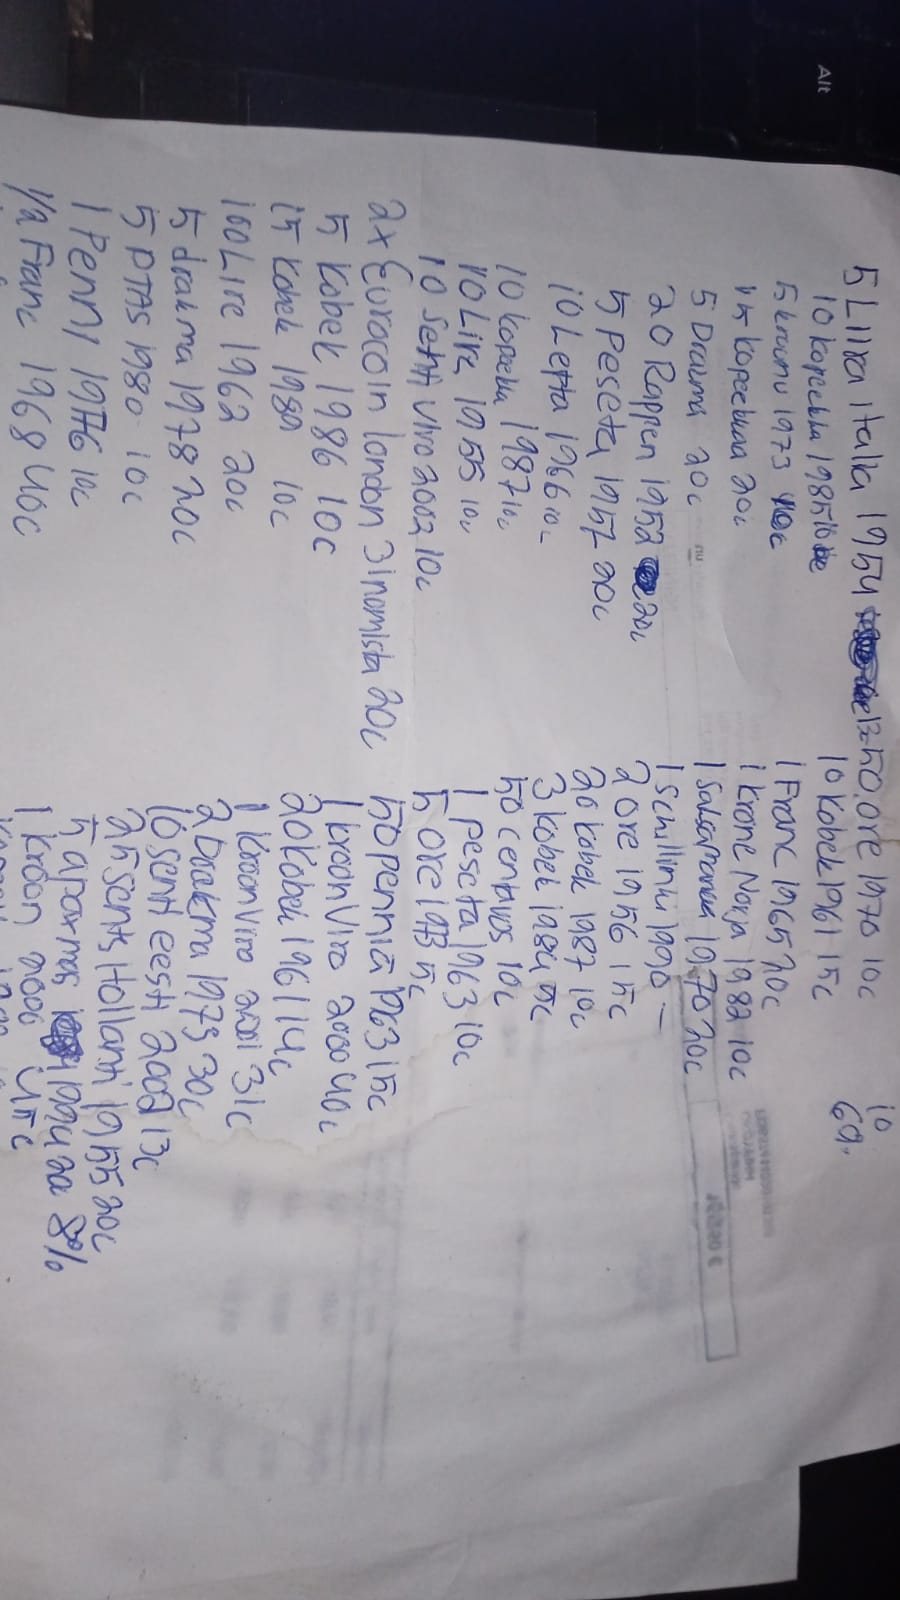 5 Liira italia 1954 13c
10 kopeekka 1985 10c
5 kruunu 1973 10c
15 kopeekkaa 20c
5 Drauma 20c
20 Rappen 1952 20c
5 Peseta 1957 20c
10 Lepta 1966 10c
10 kopeekka 1987 10c
10 Lire 1955 10c
10 Senti viro 2002 10c
2x Eurocoin london 3 inomista 20c
5 Kobek 1986 10c
15 Kobek 1980 10c
100 Lire 1962 20c
5 drakma 1978 20c
5 PTAS 1980 10c
1 Penni 1976 10c
1/2 Franc 1968 40c
50 öre 1970 10c
10 Kobek 1961 15c
1 Franc 1965 20c
1 Krone Norja 1982 10c
1 1970 20c
1 Schillinki 1990 -
2 öre 1956 15c
20 kobek 1987 10c
3 kobek 1984 15c
50 centavos 10c
1 peseta 1963 10c
5 öre 1973 15c
50 penniä 1963 15c
1 kroon Viro 2000 40c
20 Kobek 1961 14c
1 kroon Viro 2001 31c
2 Drakma 1973 30c
10 senti eesti 2002 13c
25 sents Hollanti 1955 20c
5 1994 22 8%
1 kroon 2000 45c
10
60.
Alt